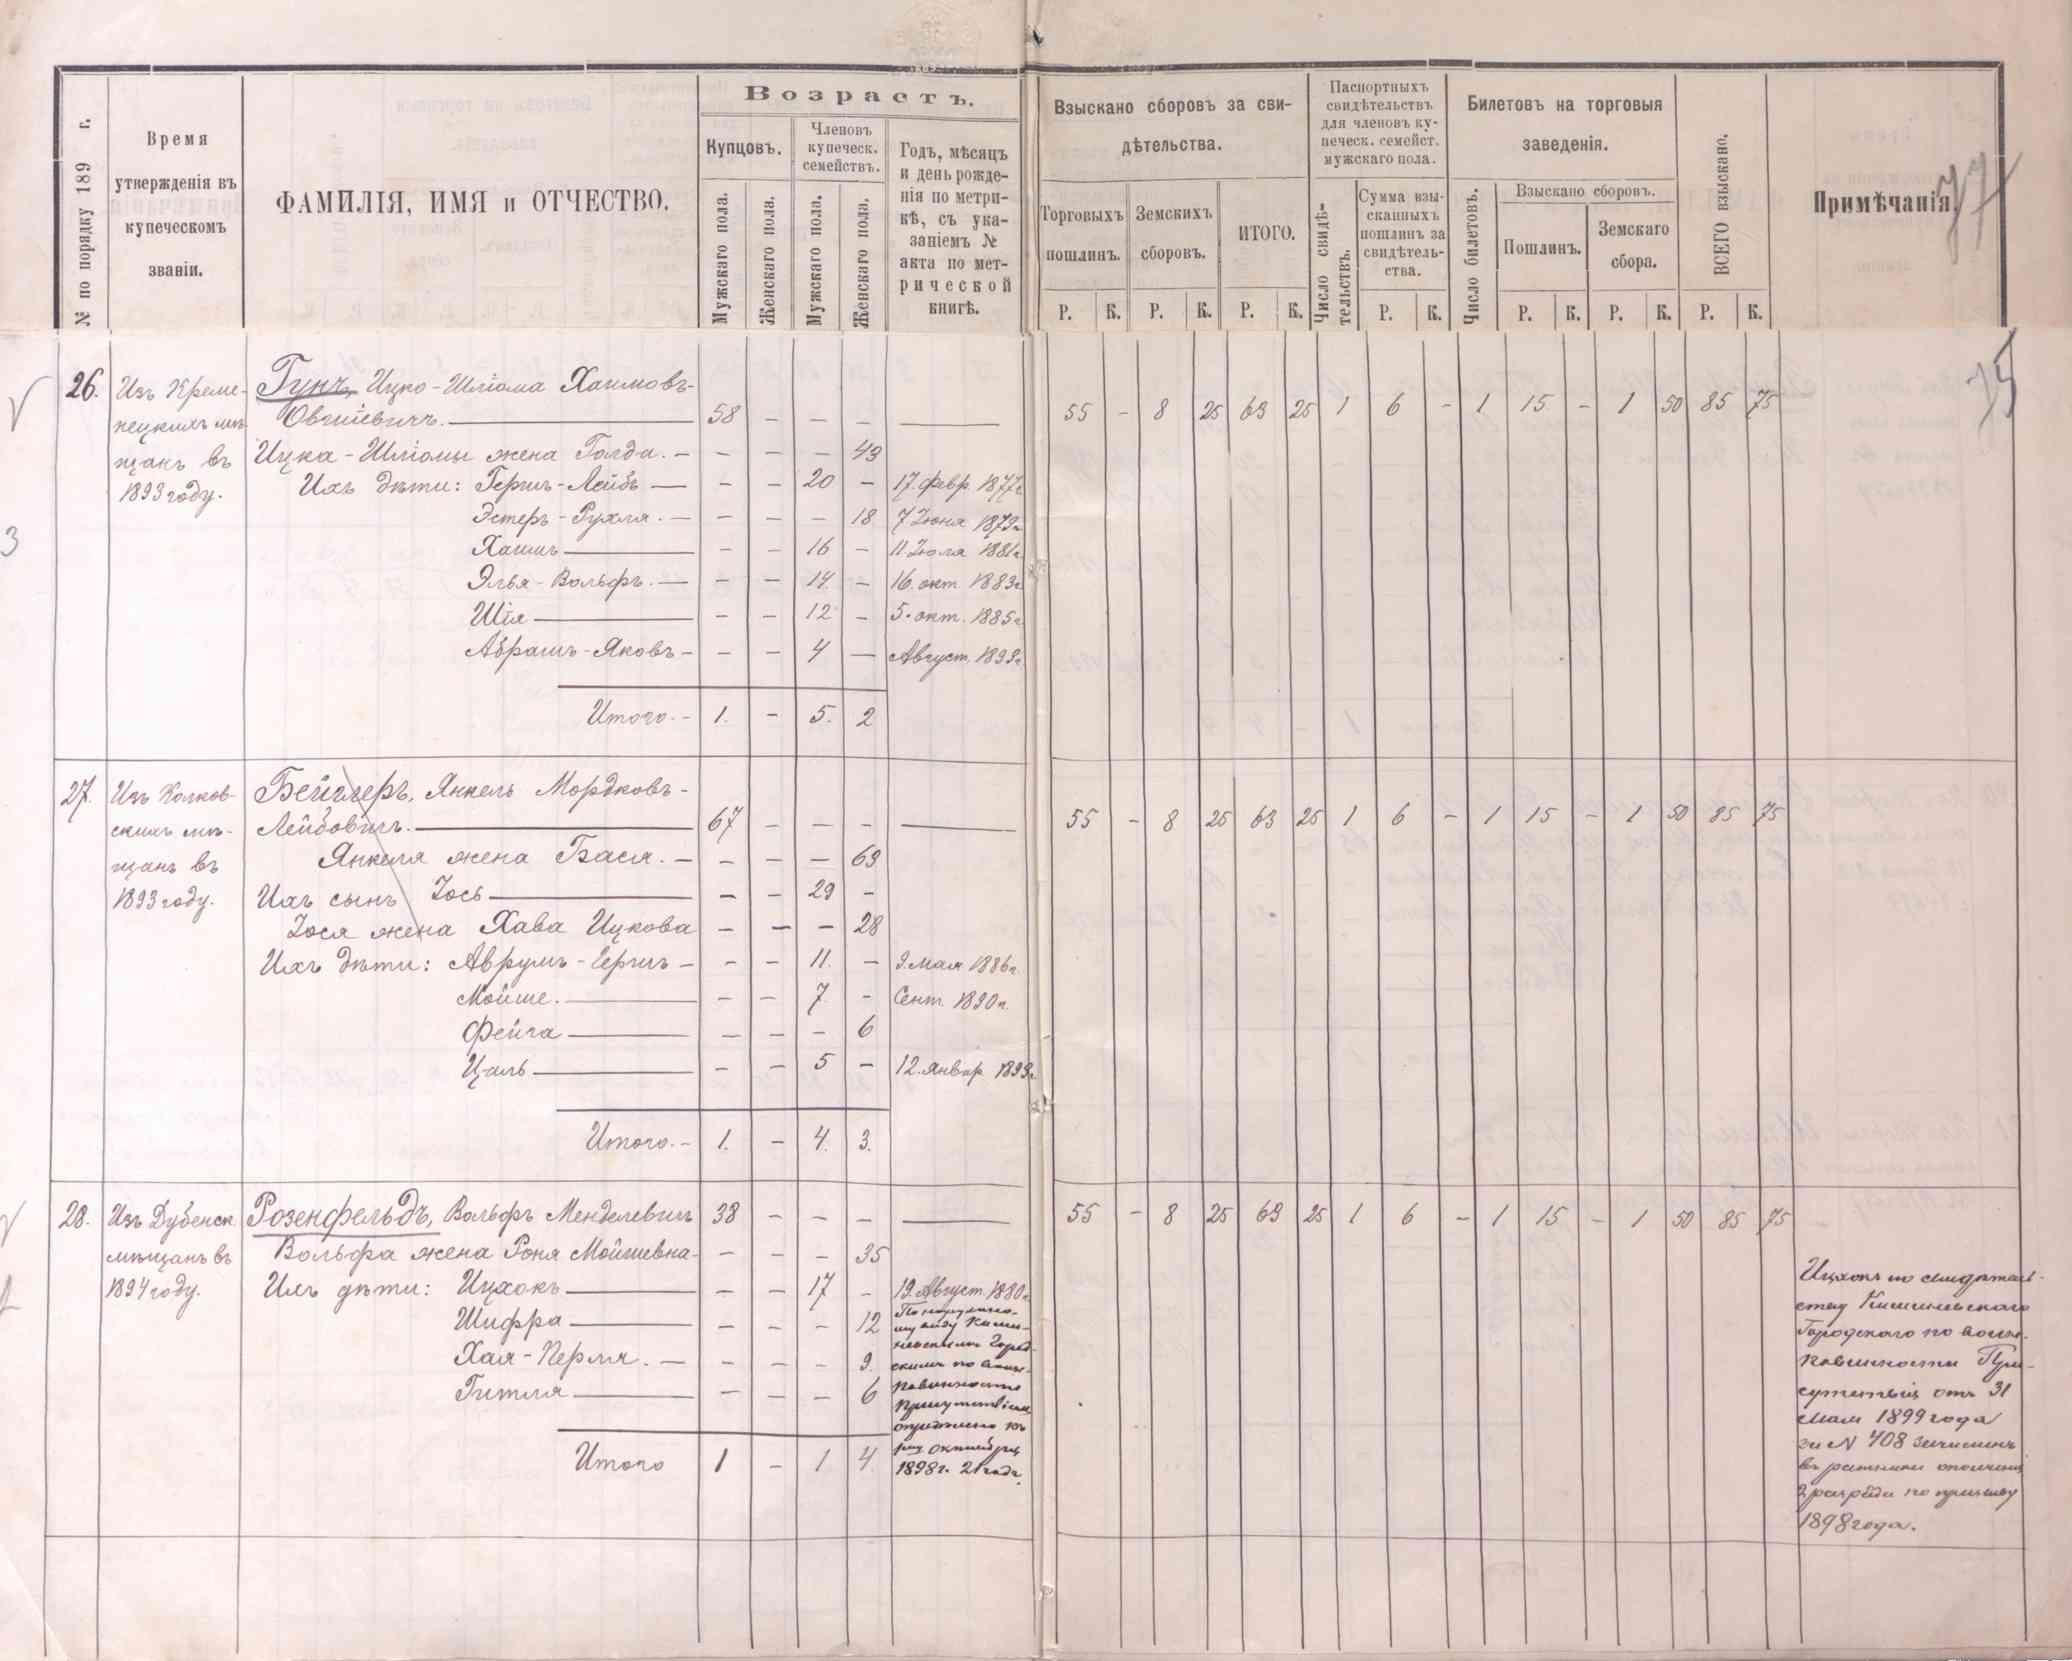 77
№ по порядку 189 г.
Время утвержденія въ купеческомъ званіи.
ФАМИЛІЯ, ИМЯ и ОТЧЕСТВО.
Возрастъ.
Купцовъ.
Мужскаго пола.
Женскаго пола.
Членовъ купеческ. семействъ.
Мужскаго пола.
Женскаго пола.
Годъ, мѣсяцъ
и день рожде-
нія по метри-
кѣ, съ ука-
заніемъ №
акта по мет-
рической
книгѣ.
Взыскано сборовъ за сви-
дѣтельства.
Торговыхъ пошлинъ.
Земскихъ сборовъ.
ИТОГО.
Р. К. Р. К. Р. К.
Паспортныхъ
свидѣтельствъ
для членовъ ку-
печеск. семейст.
мужскаго пола.
Число свидѣ-
тельствъ.
Сумма взы-
сканныхъ
пошлинъ за
свидѣтель-
ства.
Р. К.
Билетовъ на торговыя
заведенія.
Число билетовъ.
Взыскано сборовъ.
Пошлинъ.
Земскаго сбора.
Р. К. Р. К.
ВСЕГО взыскано.
Р. К.
Примѣчанія.
75
26. Изъ Креме- Гунъ, Ицко-Шліома Хаимовъ-
нецкихъ мѣ- Овшіевичъ. 58 — — — 55 - 8 25 63 25 1 6 - 1 15 - 1 50 85 75
щанъ въ Ицка-Шліомы жена Голда. — — — — 49
1893 году. Ихъ дѣти: Гершъ-Лейбъ — — — 20 — 17 февр. 1877 г.
3
Эстеръ-Рухля. — — — — 18 7 Іюня 1879 г.
Хаимъ — — 16 — 11 Іюля 1881 г.
Элья-Вольфъ. — — — 14 — 16. окт. 1883 г.
Шія — — 12 — 5. окт. 1885 г.
Абрамъ-Яковъ — — — 4 — Август. 1893 г.
Итого. — 1. — 5. 2
27. Изъ Колков- Бейглеръ, Янкель Мордковъ-
скихъ мѣ- Лейбовичъ. 67 — — — 55 - 8 25 63 25 1 6 - 1 15 - 1 50 85 75
щанъ въ Янкеля жена Бася. — — — — 69
1893 году. Ихъ сынъ Іось — — 29 —
Іося жена Хава Ицкова — — — 28
Ихъ дѣти: Аврумъ-Гершъ — — — 11. — 9. мая 1886 г.
Мойше. — — 7. — Сент. 1890 г.
Фейга — — — 6
Цаль — — 5 — 12. январ 1893 г.
Итого. — 1. — 4. 3.
28. Изъ Дубенск. Розенфельдъ, Вольфъ Менделевичъ 38 — — — 55 - 8 25 63 25 1 6 - 1 15 - 1 50 85 75
мѣщанъ въ Вольфа жена Роня Мойшевна — — — — 35
1894 году. Ихъ дѣти: Ицхокъ — — 17 — 19. Август. 1880 г.
Шифра — — — 12
Хая-Перля. — — — — 9.
Гитля — — — 6
Итого 1 — 1 4
По наружно-
му виду Киши-
невскимъ Город-
скимъ по воин.
повинности
Присутствіемъ
опредѣлено къ
октября
1898 г. 21 годъ.
Ицхокъ по свидѣтель-
ству Кишиневскаго
Городского по воин.
повинности При-
сутствія отъ 31
Мая 1899 года
за № 408 зачисленъ
въ ратники ополченія
2 разряда по призыву
1898 года.